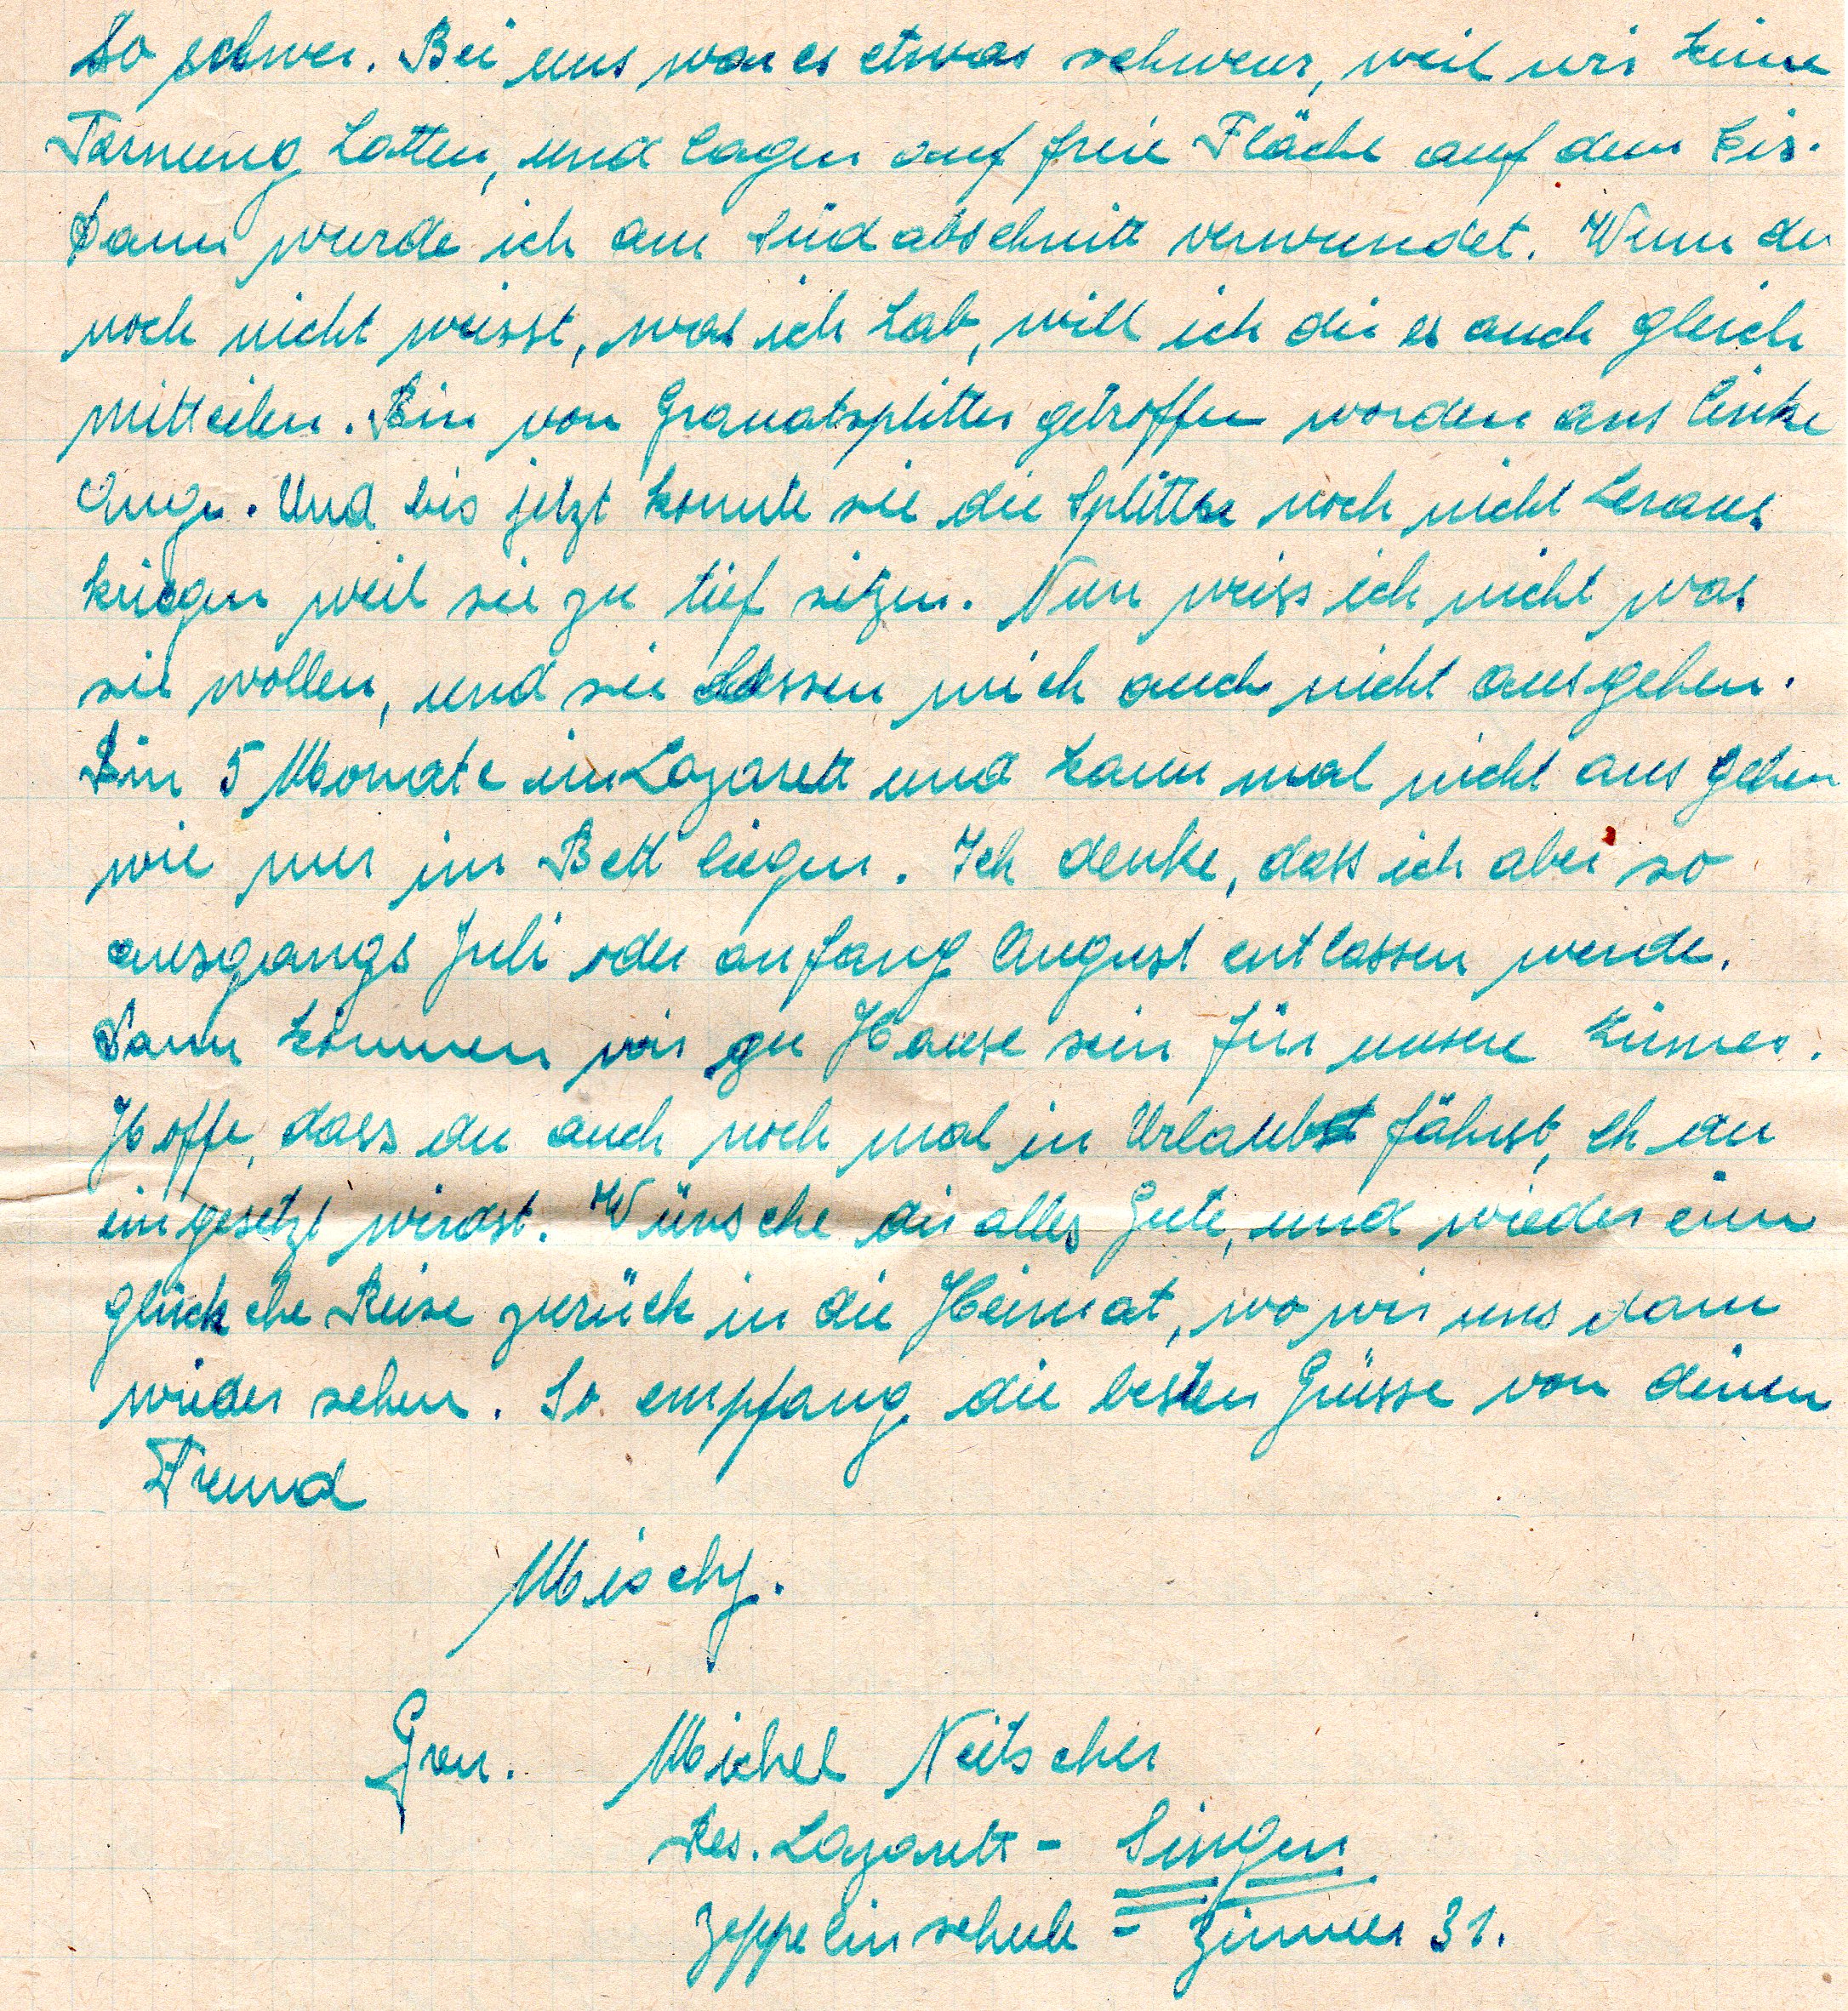 so schwer. Bei uns war es etwas schwerer, weil wir keine
Tarnung hatten, und lagen auf freie Fläche auf dem Eis.
Dann wurde ich am Südabschnitt verwundet. Wenn du
noch nicht weisst, was ich hab, will ich dir es auch gleich
mitteilen. Bin von Granatsplitter getroffen worden ans linke
Auge. Und bis jetzt konnte sie die Splitter noch nicht heraus
kriegen weil sie zu tief sitzen. Nun weiss ich nicht was
sie wollen, und sie lassen mich auch nicht ausgehen.
Bin 5 Monate im Lazarett und kann mal nicht aus gehen
wie nur im Bett liegen. Ich denke, dass ich aber so
ausgangs Juli oder anfang August entlassen werde.
Dann können wir zu Hause sein für unsere
Hoffe, dass du auch noch mal in Urlaub fährst, eh du
eingesetzt wirdst. Wünsche dir alles Gute, und wieder ein
glückche Reise zurück in die Heimat, wo wir uns dann
wieder sehen. So empfang die besten Grüsse von deinen
Freund
Mischy.
Gren. Michel Neitscher
Res. Lazarett - Singen
Zeppelinschule - Zimmer 31.